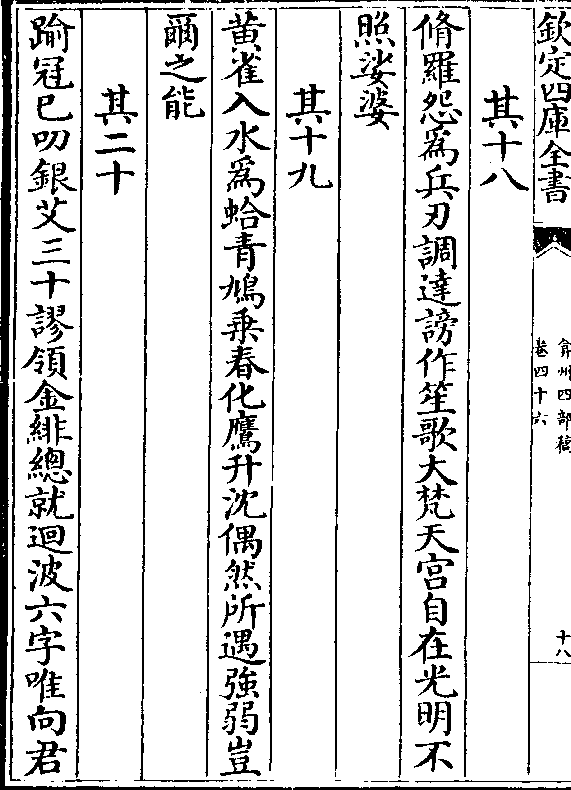 欽定四庫全書
弇州四部稿
卷四十六
十八
其十八
脩羅怨爲兵刃調達謗作笙歌大梵天宮自在光明不
照娑婆
其十九
黄雀入水爲蛤青鳩乗春化鷹升沈偶然所遇強弱豈
爾之能
其二十
踰冠已叨銀艾三十謬領金緋總就迴波六字唯向君